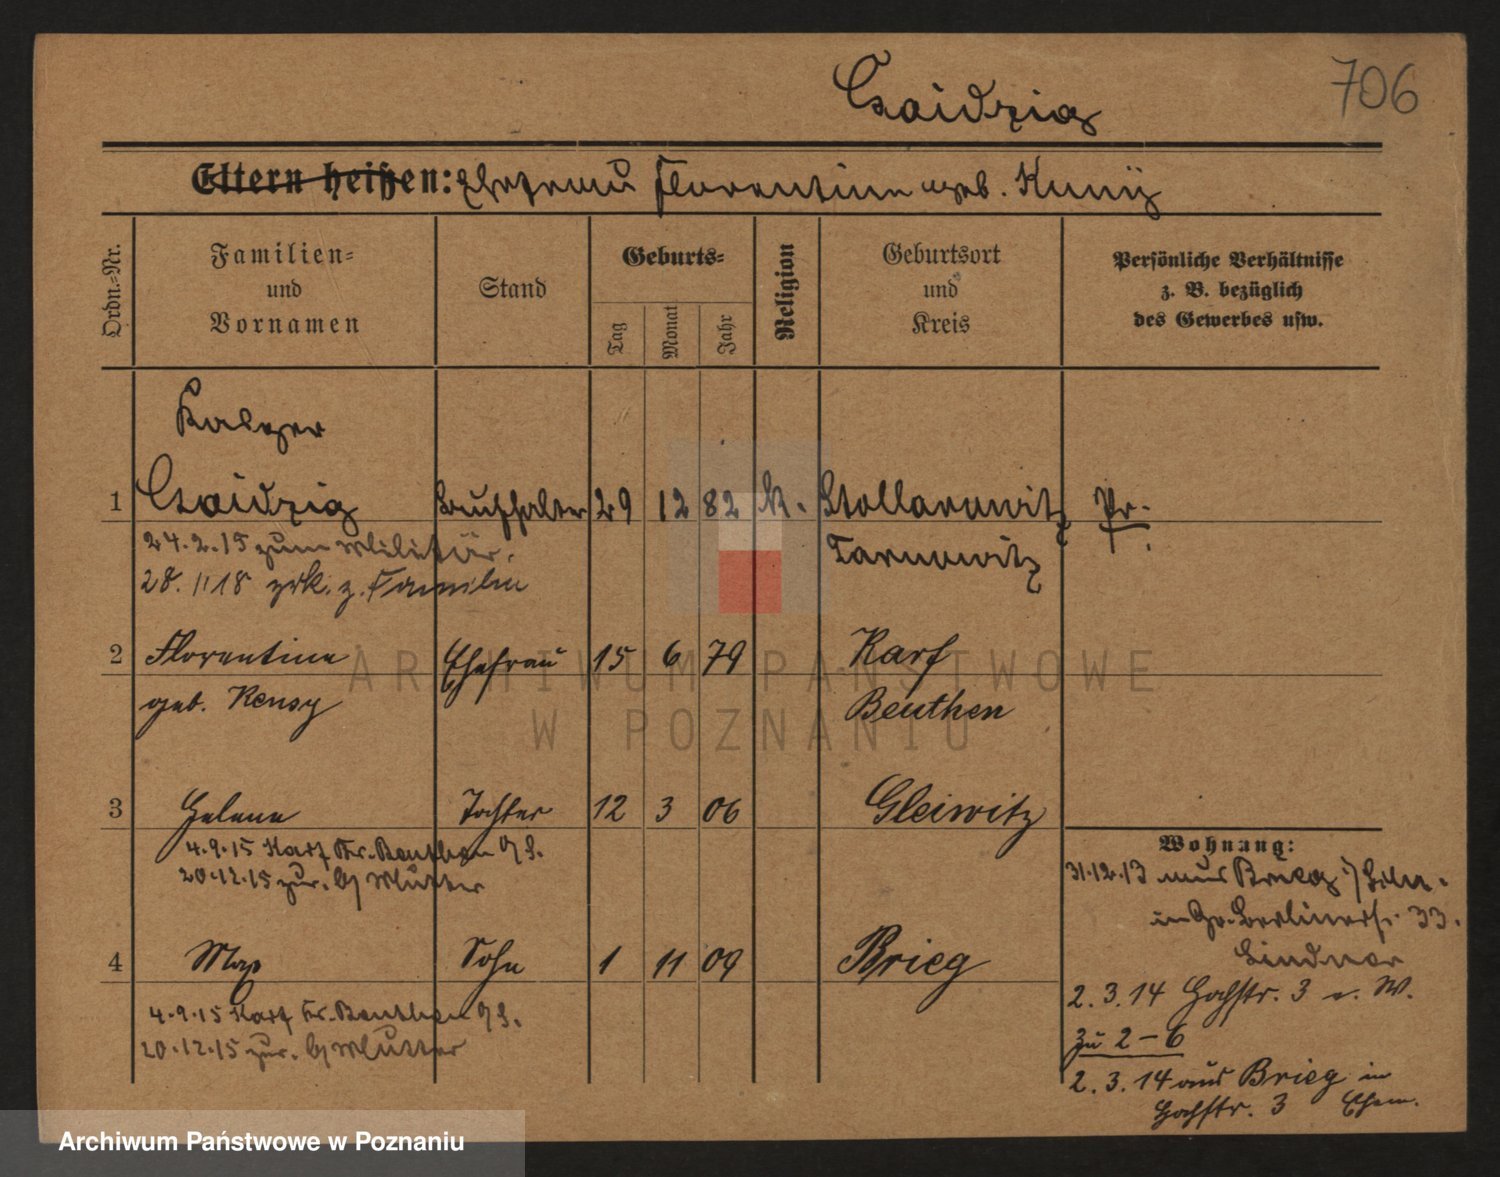 Czaidzig
706
Eltern heißen: Ehefrau Florentine geb.
Ordn.-Nr.
Familien-
und
Vornamen
Stand
Geburts-
Tag
Monat
Jahr
Religion
Geburtsort
und
Kreis
Persönliche Verhältnisse
z. B. bezüglich
des Gewerbes usw.
1 Czaidzig Buchhalter 29 12 82 k. Stollarowitz Pr.
24.2.15 zum Militär. Tarnowitz
28.11 18 zrk. z. Familie
2 Florentine Ehefrau 15 6 79 Karf
geb. Beuthen
3 Helene Tochter 12 3 06 Gleiwitz
4.9.15 Karf Kr. Beuthen O/S.
20.12.15 zur. b/ Mutter
4 Max Sohn 1 11 09 Brieg
4.9.15 Karf Kr. Beuthen O/S.
20.12.15 zur. b/ Mutter
Wohnung:
31.12.13 aus Brieg
in Gr. Berlinerstr. 33.
Lindner
2.3.14 Hochstr. 3 v. W.
zu 2-6
2.3.14 aus Brieg in
Hochstr. 3 Ehem.
ARCHIWUM PAŃSTWOWE
W POZNANIU
Archiwum Państwowe w Poznaniu